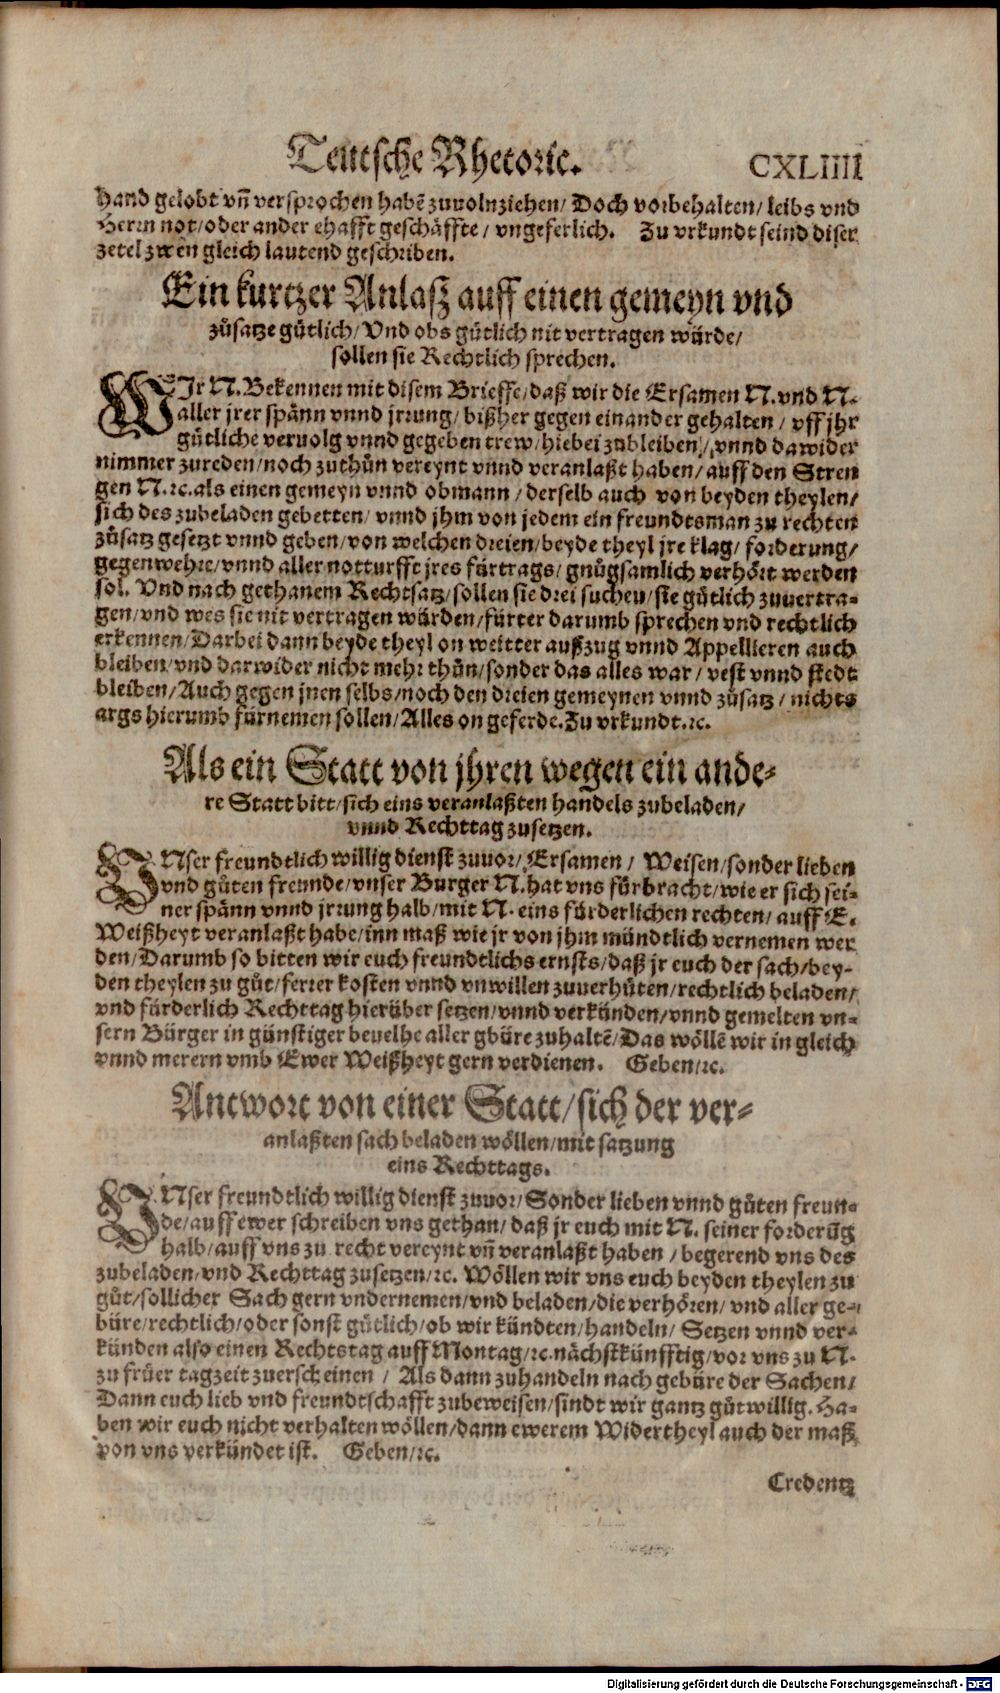 Teutsche Rhetoric. CXLIIII
hand gelobt vñ versprochen habẽ zuuolnziehen/ Doch vorbehalten/ leibs vnd
Herrn not/oder ander ehafft geschäffte/ vngeferlich. Zu vrkundt seind diser
zetel zwen gleich lautend geschriben.
Ein kurtzer Anlaß auff einen gemeyn vnd
zůsatze gütlich/ Vnd obs gütlich nit vertragen würde/
sollen sie Rechtlich sprechen.
WIr N. Bekennen mit disem Brieffe/ daß wir die Ersamen N. vnd N.
aller jrer spänn vnnd jrrung/ bißher gegen einander gehalten/ vff jhr
gütliche veruolg vnnd gegeben trew/ hiebei zubleiben/ vnnd dawider
nimmer zureden/ noch zuthůn vereynt vnnd veranlaßt haben/ auff den Stren
gen N. ꝛc. als einen gemeyn vnnd obmann/ derselb auch von beyden theylen/
sich des zubeladen gebetten/ vnnd jhm von jedem ein freundtsman zu rechten
zůsatz gesetzt vnnd geben/ von welchen dreien/ beyde theyl jre klag/ forderung/
gegenwehre/ vnnd aller notturfft jres fürtrags/ gnůgsamlich verhört werden
sol. Vnd nach gethanem Rechtsatz/ sollen sie drei suchen/ sie gütlich zuuertra-
gen/ vnd wes sie nit vertragen würden/ fürter darumb sprechen vnd rechtlich
erkennen/ Darbei dann beyde theyl on weitter außzug vnnd Appellieren auch
bleiben/ vnd darwider nicht mehr thůn/ sonder das alles war/ vest vnnd stedt
bleiben/ Auch gegen jnen selbs/ noch den dreien gemeynen vnnd zůsatz/ nichts
args hierumb fürnemen sollen/ Alles on geferde. Zu vrkundt. ꝛc.
Als ein Statt von jhren wegen ein ande-
re Statt bitt/ sich eins veranlaßten handels zubeladen/
vnnd Rechttag zusetzen.
VNser freundtlich willig dienst zuuor/ Ersamen/ Weisen/ sonder lieben
vnd gůten freunde/ vnser Burger N. hat vns fürbracht/ wie er sich sei-
ner spänn vnnd jrrung halb/ mit N. eins fürderlichen rechten/ auff E.
Weißheyt veranlaßt habe/ inn maß wie jr von jhm mündtlich vernemen wer
den/ Darumb so bitten wir euch freundtlichs ernsts/ daß jr euch der sach/ bey-
den theylen zu gůt/ ferrer kosten vnnd vnwillen zuuerhüten/ rechtlich beladen/
vnd fürderlich Rechttag hierüber setzen/ vnnd verkünden/ vnnd gemelten vn-
sern Bürger in günstiger beuelhe aller gbüre zuhaltẽ/ Das wöllẽ wir in gleich
vnnd merern vmb Ewer Weißheyt gern verdienen. Geben/ ꝛc.
Antwort von einer Statt/ sich der ver-
anlaßten sach beladen wöllen/ mit satzung
eins Rechttags.
VNser freundtlich willig dienst zuuor/ Sonder lieben vnnd gůten freun-
de/ auff ewer schreiben vns gethan/ daß jr euch mit N. seiner forderũg
halb/ auff vns zu recht vereynt vñ veranlaßt haben/ begerend vns des
zubeladen/ vnd Rechttag zusetzen/ ꝛc. Wöllen wir vns euch beyden theylen zu
gůt/ sollicher Sach gern vndernemen/ vnd beladen/ die verhören/ vnd aller ge-
büre/ rechtlich/ oder sonst gütlich/ ob wir kündten/ handeln/ Setzen vnnd ver-
künden also einen Rechtstag auff Montag/ ꝛc. nächstkünfftig/ vor vns zu N.
zu früer tagzeit zuerscheinen/ Als dann zuhandeln nach gebüre der Sachen/
Dann euch lieb vnd freundtschafft zubeweisen/ sindt wir gantz gůtwillig. Ha-
ben wir euch nicht verhalten wöllen/ dann ewerem Widertheyl auch der maß
von vns verkündet ist. Geben/ ꝛc.
Credentz
Digitalisierung gefördert durch die Deutsche Forschungsgemeinschaft - DFG